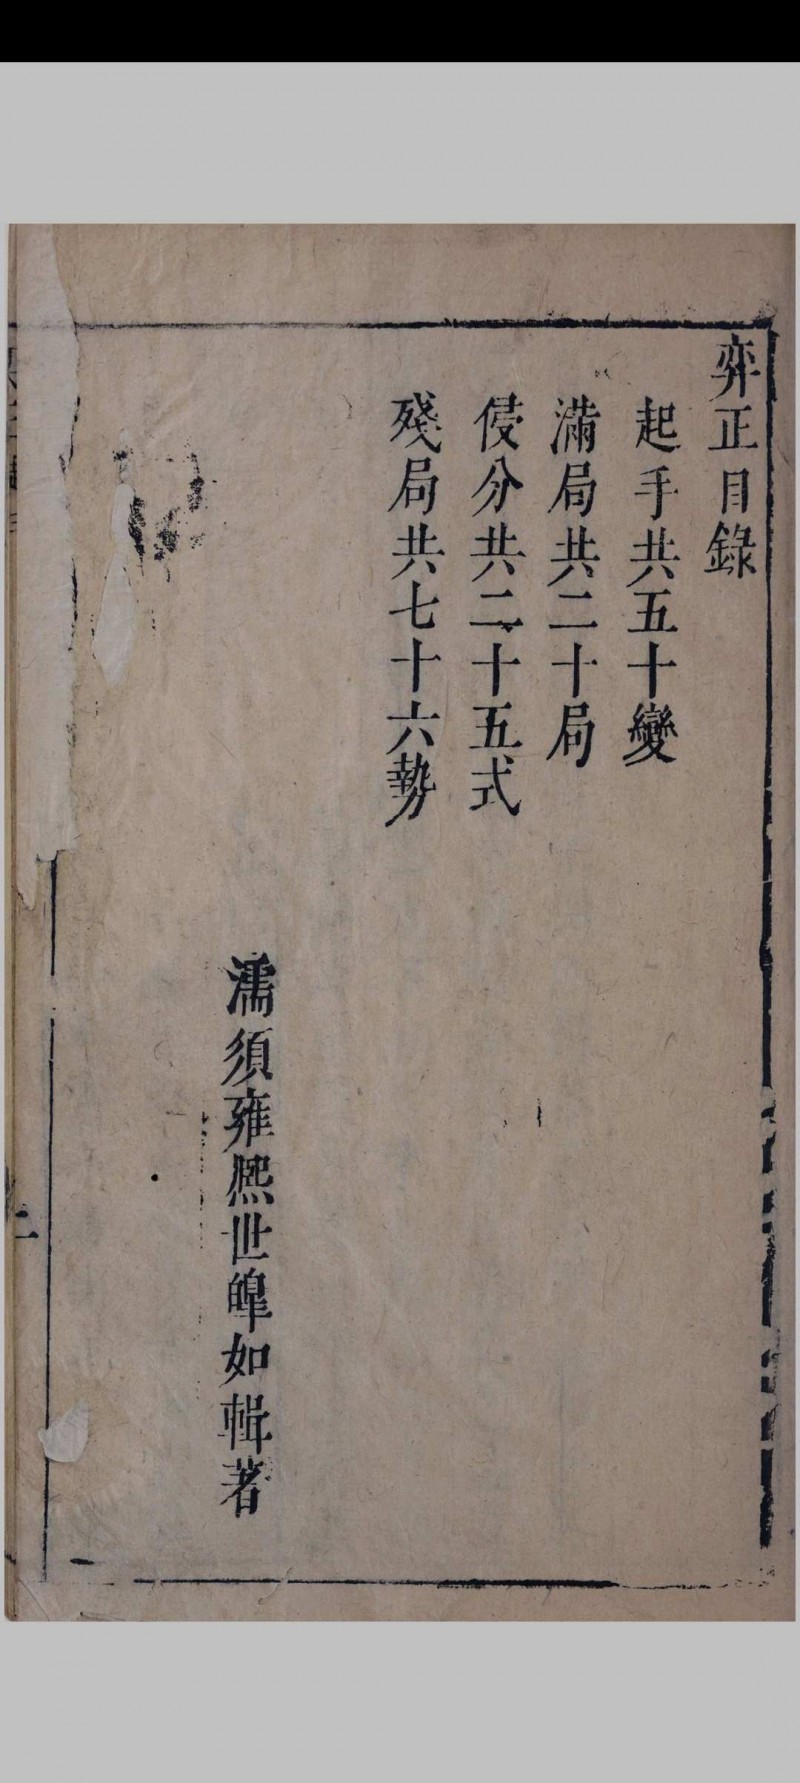 弈正目錄
起手共五十變
滿局共二十局
侵分共二十五式
殘局共七十六勢
濡須雍熈世皥如輯著
二